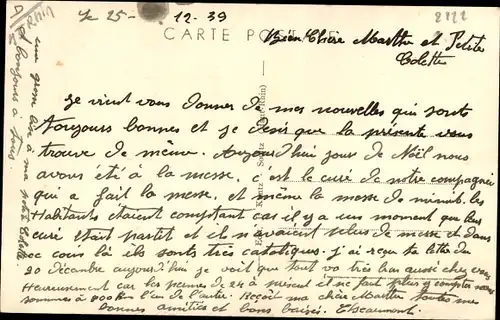 Le 25-12-39
8122
CARTE POSTALE
Bien Chère Marthe et Petite
Colette
Je vient vous donner de mes nouvelles qui sont
toujours bonnes et je désir que la présente vous
trouve de même. Aujourd'hui jour de Noël nous
avons été à la messe, c'est le curé de notre compagnie
qui a fait la messe, et même la messe de minuit. les
Habitants étaient comptant car il y a un moment que leur
curé était partit et il n'avaient plus de messe et dans
ce coin là ils sonts très catoliques. j'ai reçu ta lettre du
20 décembre aujourd'hui je voit que tout va très bien aussi chez
Heureusement car les permes de 24 à présent il ne faut plus y compter nous
sommes à 800 Km l'un de l'autre. Reçoit ma chère Marthe toutes mes
bonnes amitiés et bons baisés.
une grosse bise à ma petite Colette
et bonjours à tous.